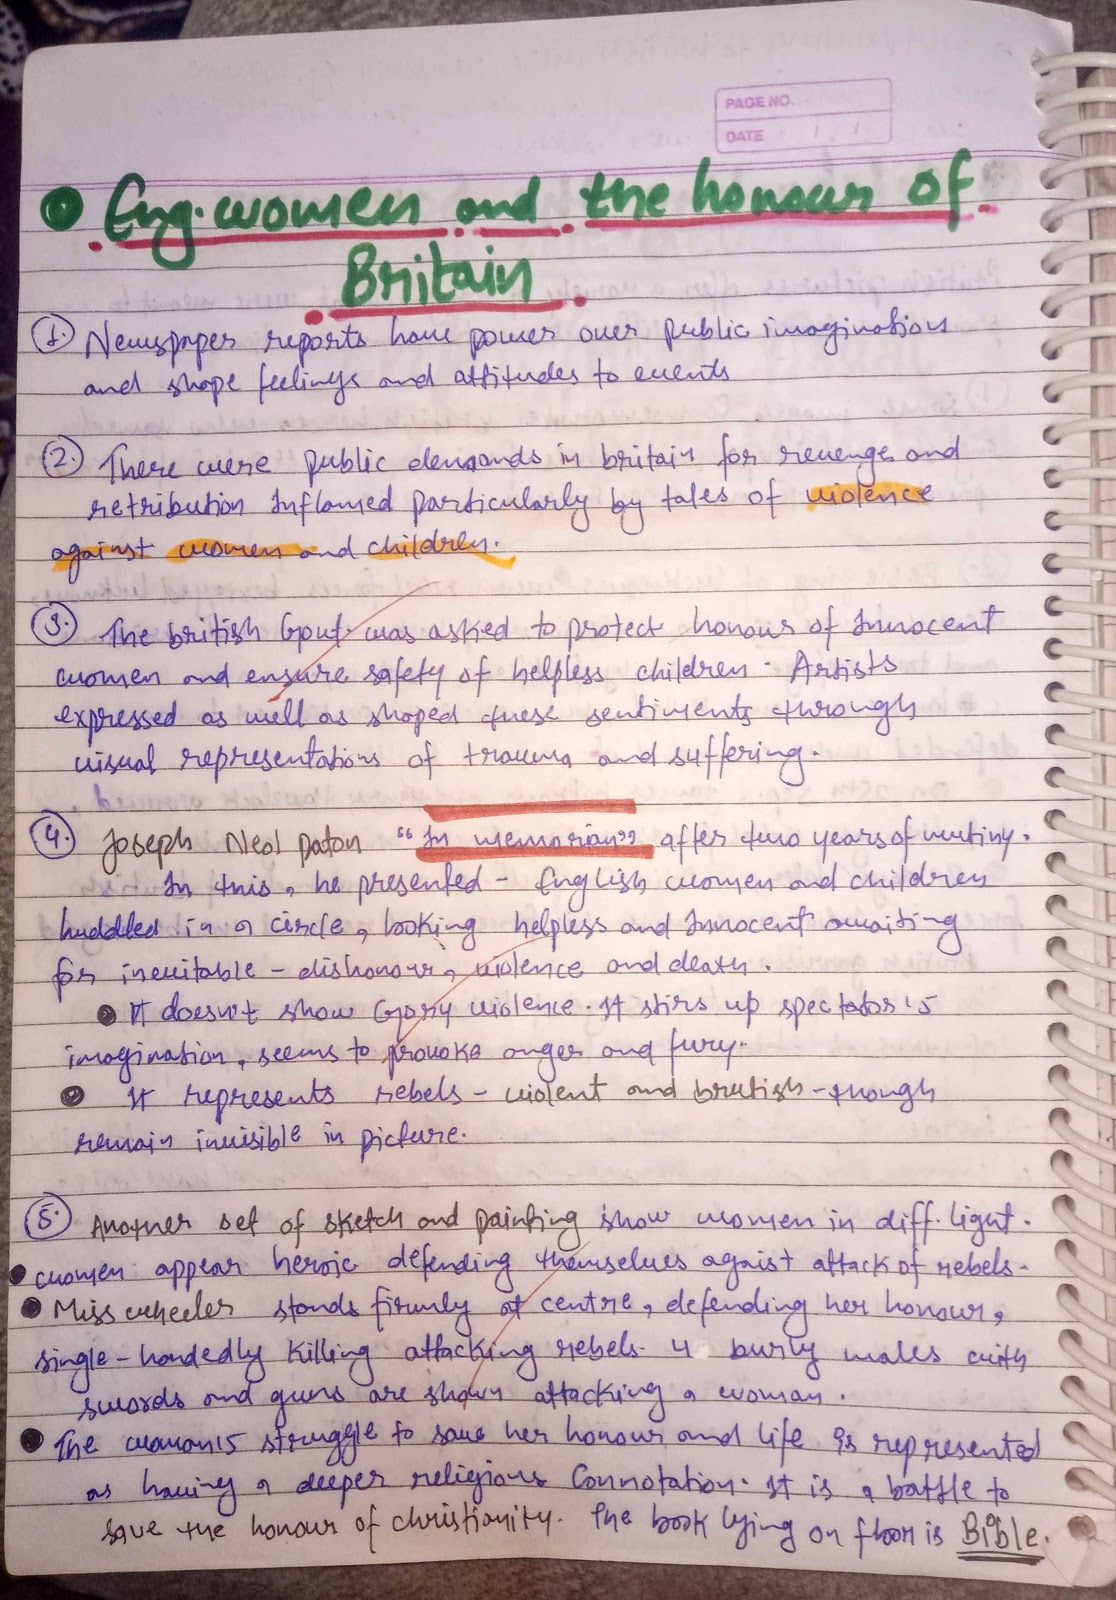 PAGE NO.
DATE
Eng. women and the honour of
Britain
1. Newspaper reports have power over public imagination
and shape feelings and attitudes to events
2. There were public demands in britain for revenge and
retribution Inflamed particularly by tales of violence
against women and children.
3. The british Govt. was asked to protect honour of Innocent
women and ensure safety of helpless children. Artists
expressed as well as shaped these sentiments through
visual representations of trauma and suffering.
4. Joseph Neol Paton "In memorian" after two years of mutiny.
In this, he presented - English women and children
huddled in a circle, looking helpless and Innocent awaiting
for inevitable - dishonour, violence and death.
It doesn't show Gory violence. It stirs up spectator's
imagination, seems to provoke anger and fury.
It represents rebels - violent and brutish - though
remain invisible in picture.
5. Another set of sketch and painting show women in diff. light.
women appear heroic defending themselves agaist attack of rebels.
Miss wheeler stands firmly at centre, defending her honour,
single-handedly killing attacking rebels. 4 burly males with
swords and guns are shown attacking a woman.
The woman's struggle to save her honour and life is represented
as having a deeper religious Connotation. It is a battle to
save the honour of christianity. The book lying on floor is Bible.